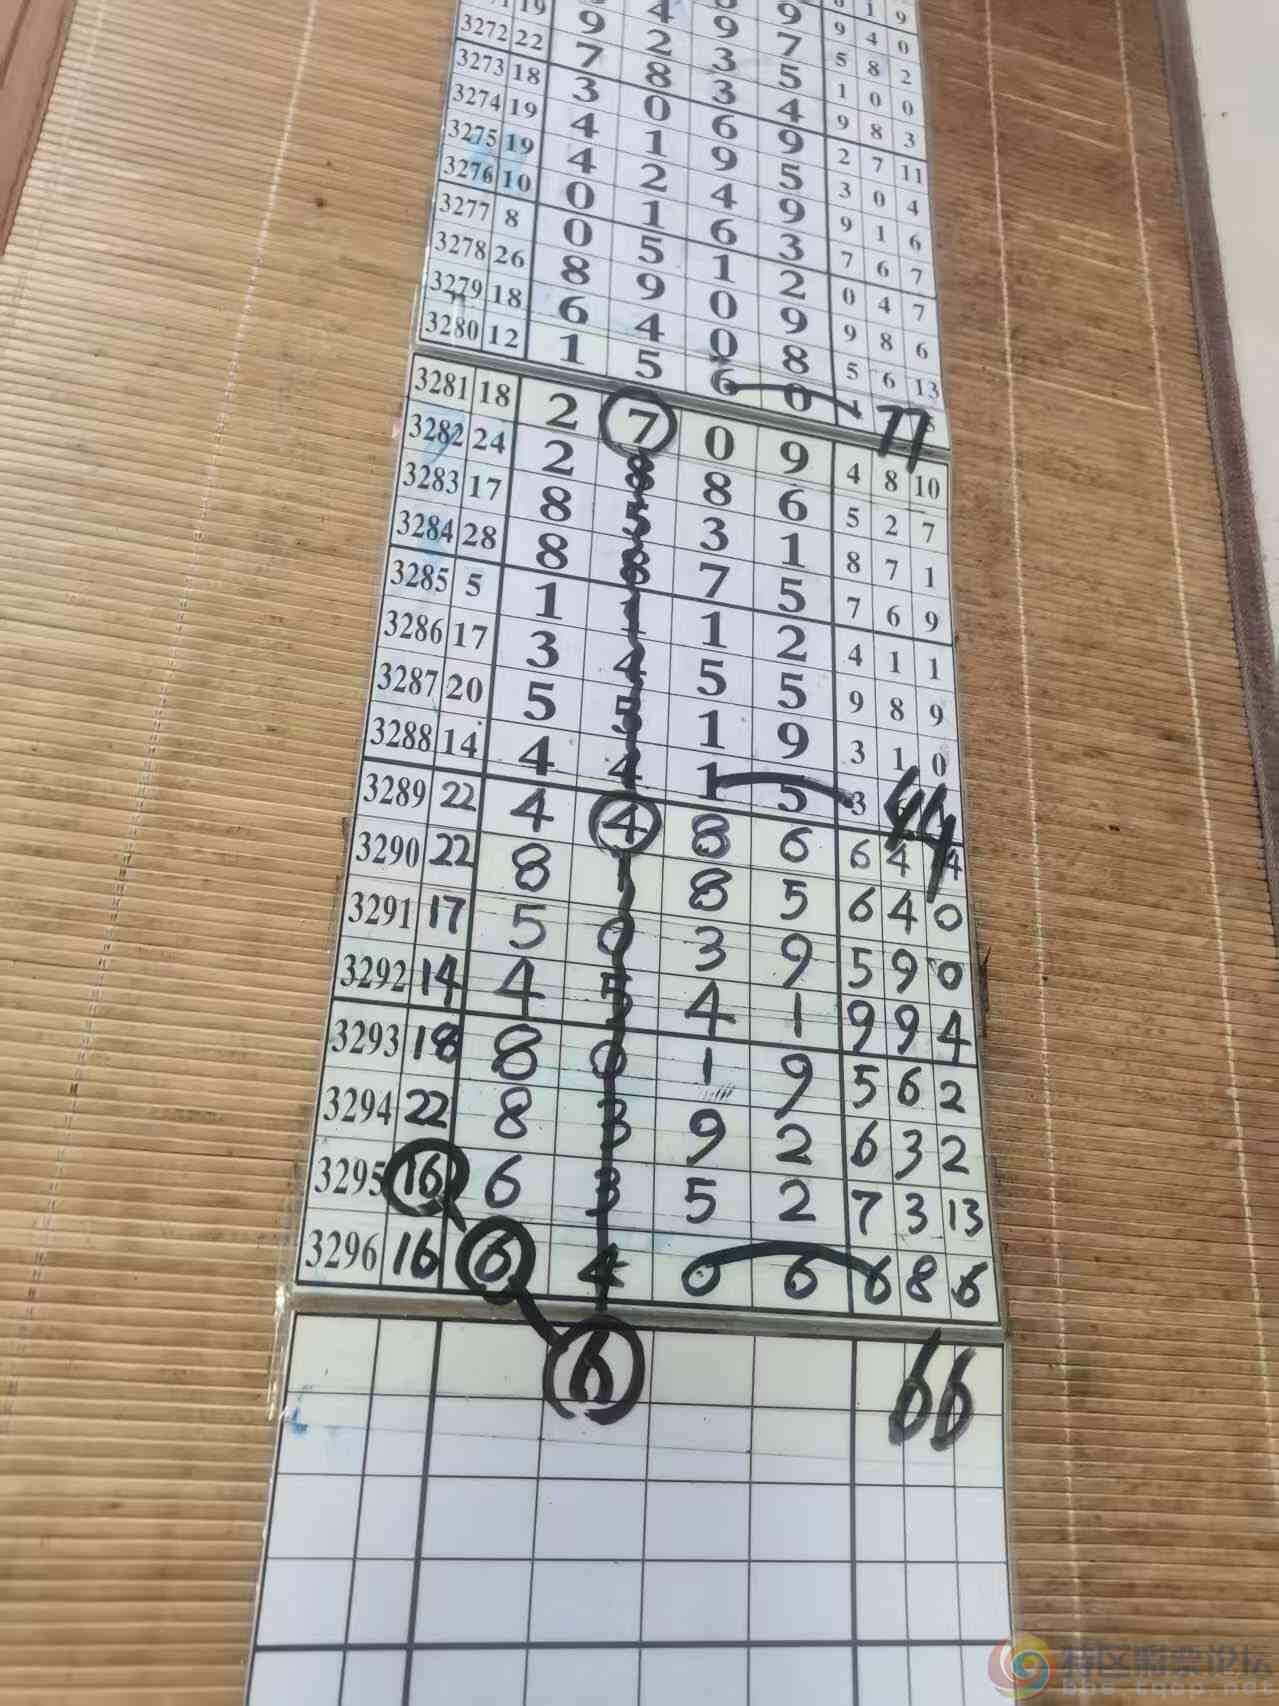 1 9
9 9 4 0
4 9 7 5 8 2
19 9 2 3 5 1 0 0
3272 22 7 8 3 4 9 8 3
3273 18 3 0 6 9 2 7 11
3274 19 4 1 9 5 3 0 4
3275 19 4 2 4 9 9 1 6
3276 10 0 1 6 3 7 6 7
3277 8 0 5 1 2 0 4 7
3278 26 8 9 0 9 9 8 6
3279 18 6 4 0 8 5 6 13
3280 12 1 5 6 0 1 77
3281 18 2 7 0 9 4 8 10
3282 24 2 8 8 6 5 2 7
3283 17 8 5 3 1 8 7 1
3284 28 8 8 7 5 7 6 9
3285 5 1 1 1 2 4 1 1
3286 17 3 4 5 5 9 8 9
3287 20 5 5 1 9 3 1 0
3288 14 4 4 1 5 3 44
3289 22 4 4 8 6 6 4 4
3290 22 8 1 8 5 6 4 0
3291 17 5 0 3 9 5 9 0
3292 14 4 5 4 1 9 9 4
3293 18 8 0 1 9 5 6 2
3294 22 8 3 9 2 6 3 2
3295 16 6 3 5 2 7 3 13
3296 16 6 4 0 6 6 8 6
6 66
特区彩票论坛
bbs.tqcp.net